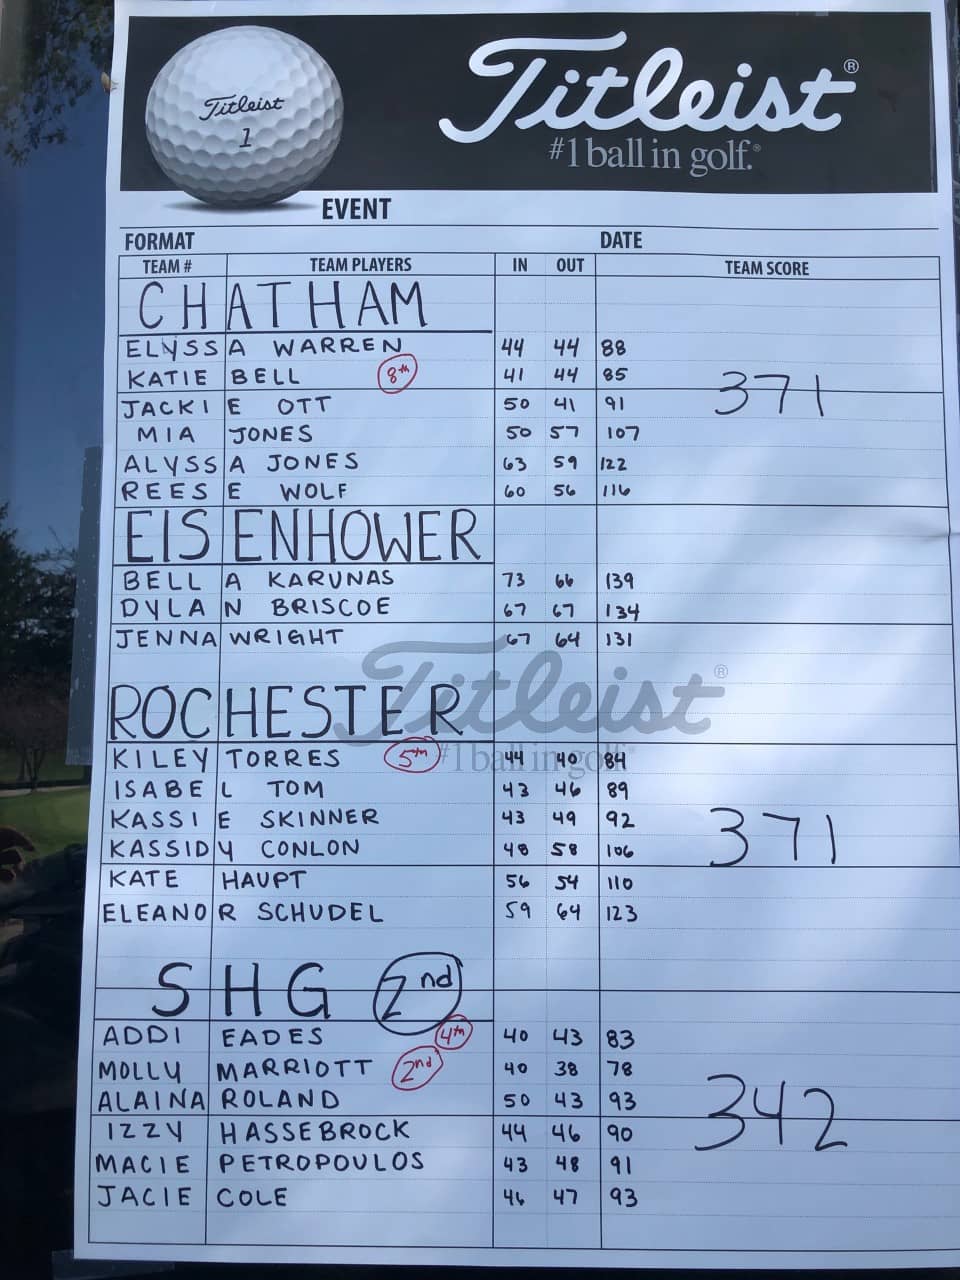 Titleist
1
Titleist®
#1 ball in golf.®
EVENT
FORMAT DATE
TEAM # TEAM PLAYERS IN OUT TEAM SCORE
CHATHAM
ELYSSA WARREN 44 44 88
KATIE BELL 8th 41 44 85
371
JACKIE OTT 50 41 91
MIA JONES 50 57 107
ALYSSA JONES 63 59 122
REESE WOLF 60 56 116
EISENHOWER
BELLA KARUNAS 73 66 139
DYLAN BRISCOE 67 67 134
JENNA WRIGHT 67 64 131
Titleist®
ROCHESTER
KILEY TORRES 5th 44 40 84
#1 ball in golf.®
ISABEL TOM 43 46 89
KASSIE SKINNER 43 49 92
371
KASSIDY CONLON 48 58 106
KATE HAUPT 56 54 110
ELEANOR SCHUDEL 59 64 123
SHG 2nd
ADDI EADES 4th 40 43 83
MOLLY MARRIOTT 2nd 40 38 78
ALAINA ROLAND 50 43 93
342
IZZY HASSEBROCK 44 46 90
MACIE PETROPOULOS 43 48 91
JACIE COLE 46 47 93